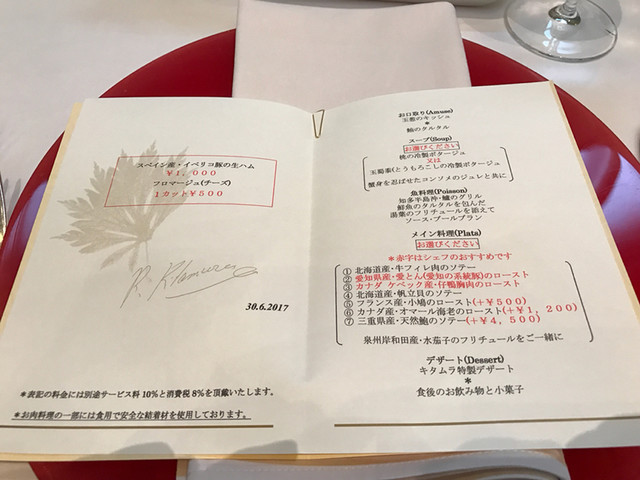 スペイン産・イベリコ豚の生ハム
￥1,000
フロマージュ(チーズ)
1カット￥500
R. Kitamura
30.6.2017
＊表記の料金には別途サービス料10%と消費税8%を頂戴いたします。
＊お肉料理の一部には食用で安全な結着材を使用しております。
お口取り(Amuse)
玉葱のキッシュ
＊
鮪のタルタル
スープ(Soup)
お選びください
桃の冷製ポタージュ
又は
玉蜀黍(とうもろこし)の冷製ポタージュ
蟹身を忍ばせたコンソメのジュレと共に
魚料理(Poisson)
知多半島沖・鱸のグリル
鮮魚のタルタルを包んだ
湯葉のフリチュールを添えて
ソース・ブールブラン
メイン料理(Plats)
お選びください
＊赤字はシェフのおすすめです
① 北海道産・牛フィレ肉のソテー
② 愛知県産・愛とん(愛知の系統豚)のロースト
③ カナダ ケベック産・仔鴨胸肉のロースト
④ 北海道産・帆立貝のソテー
⑤ フランス産・小鳩のロースト(+￥500)
⑥ カナダ産・オマール海老のロースト(+￥1,200)
⑦ 三重県産・天然鮑のソテー(+￥4,500)
泉州岸和田産・水茄子のフリチュールをご一緒に
デザート(Dessert)
キタムラ特製デザート
＊
食後のお飲み物と小菓子